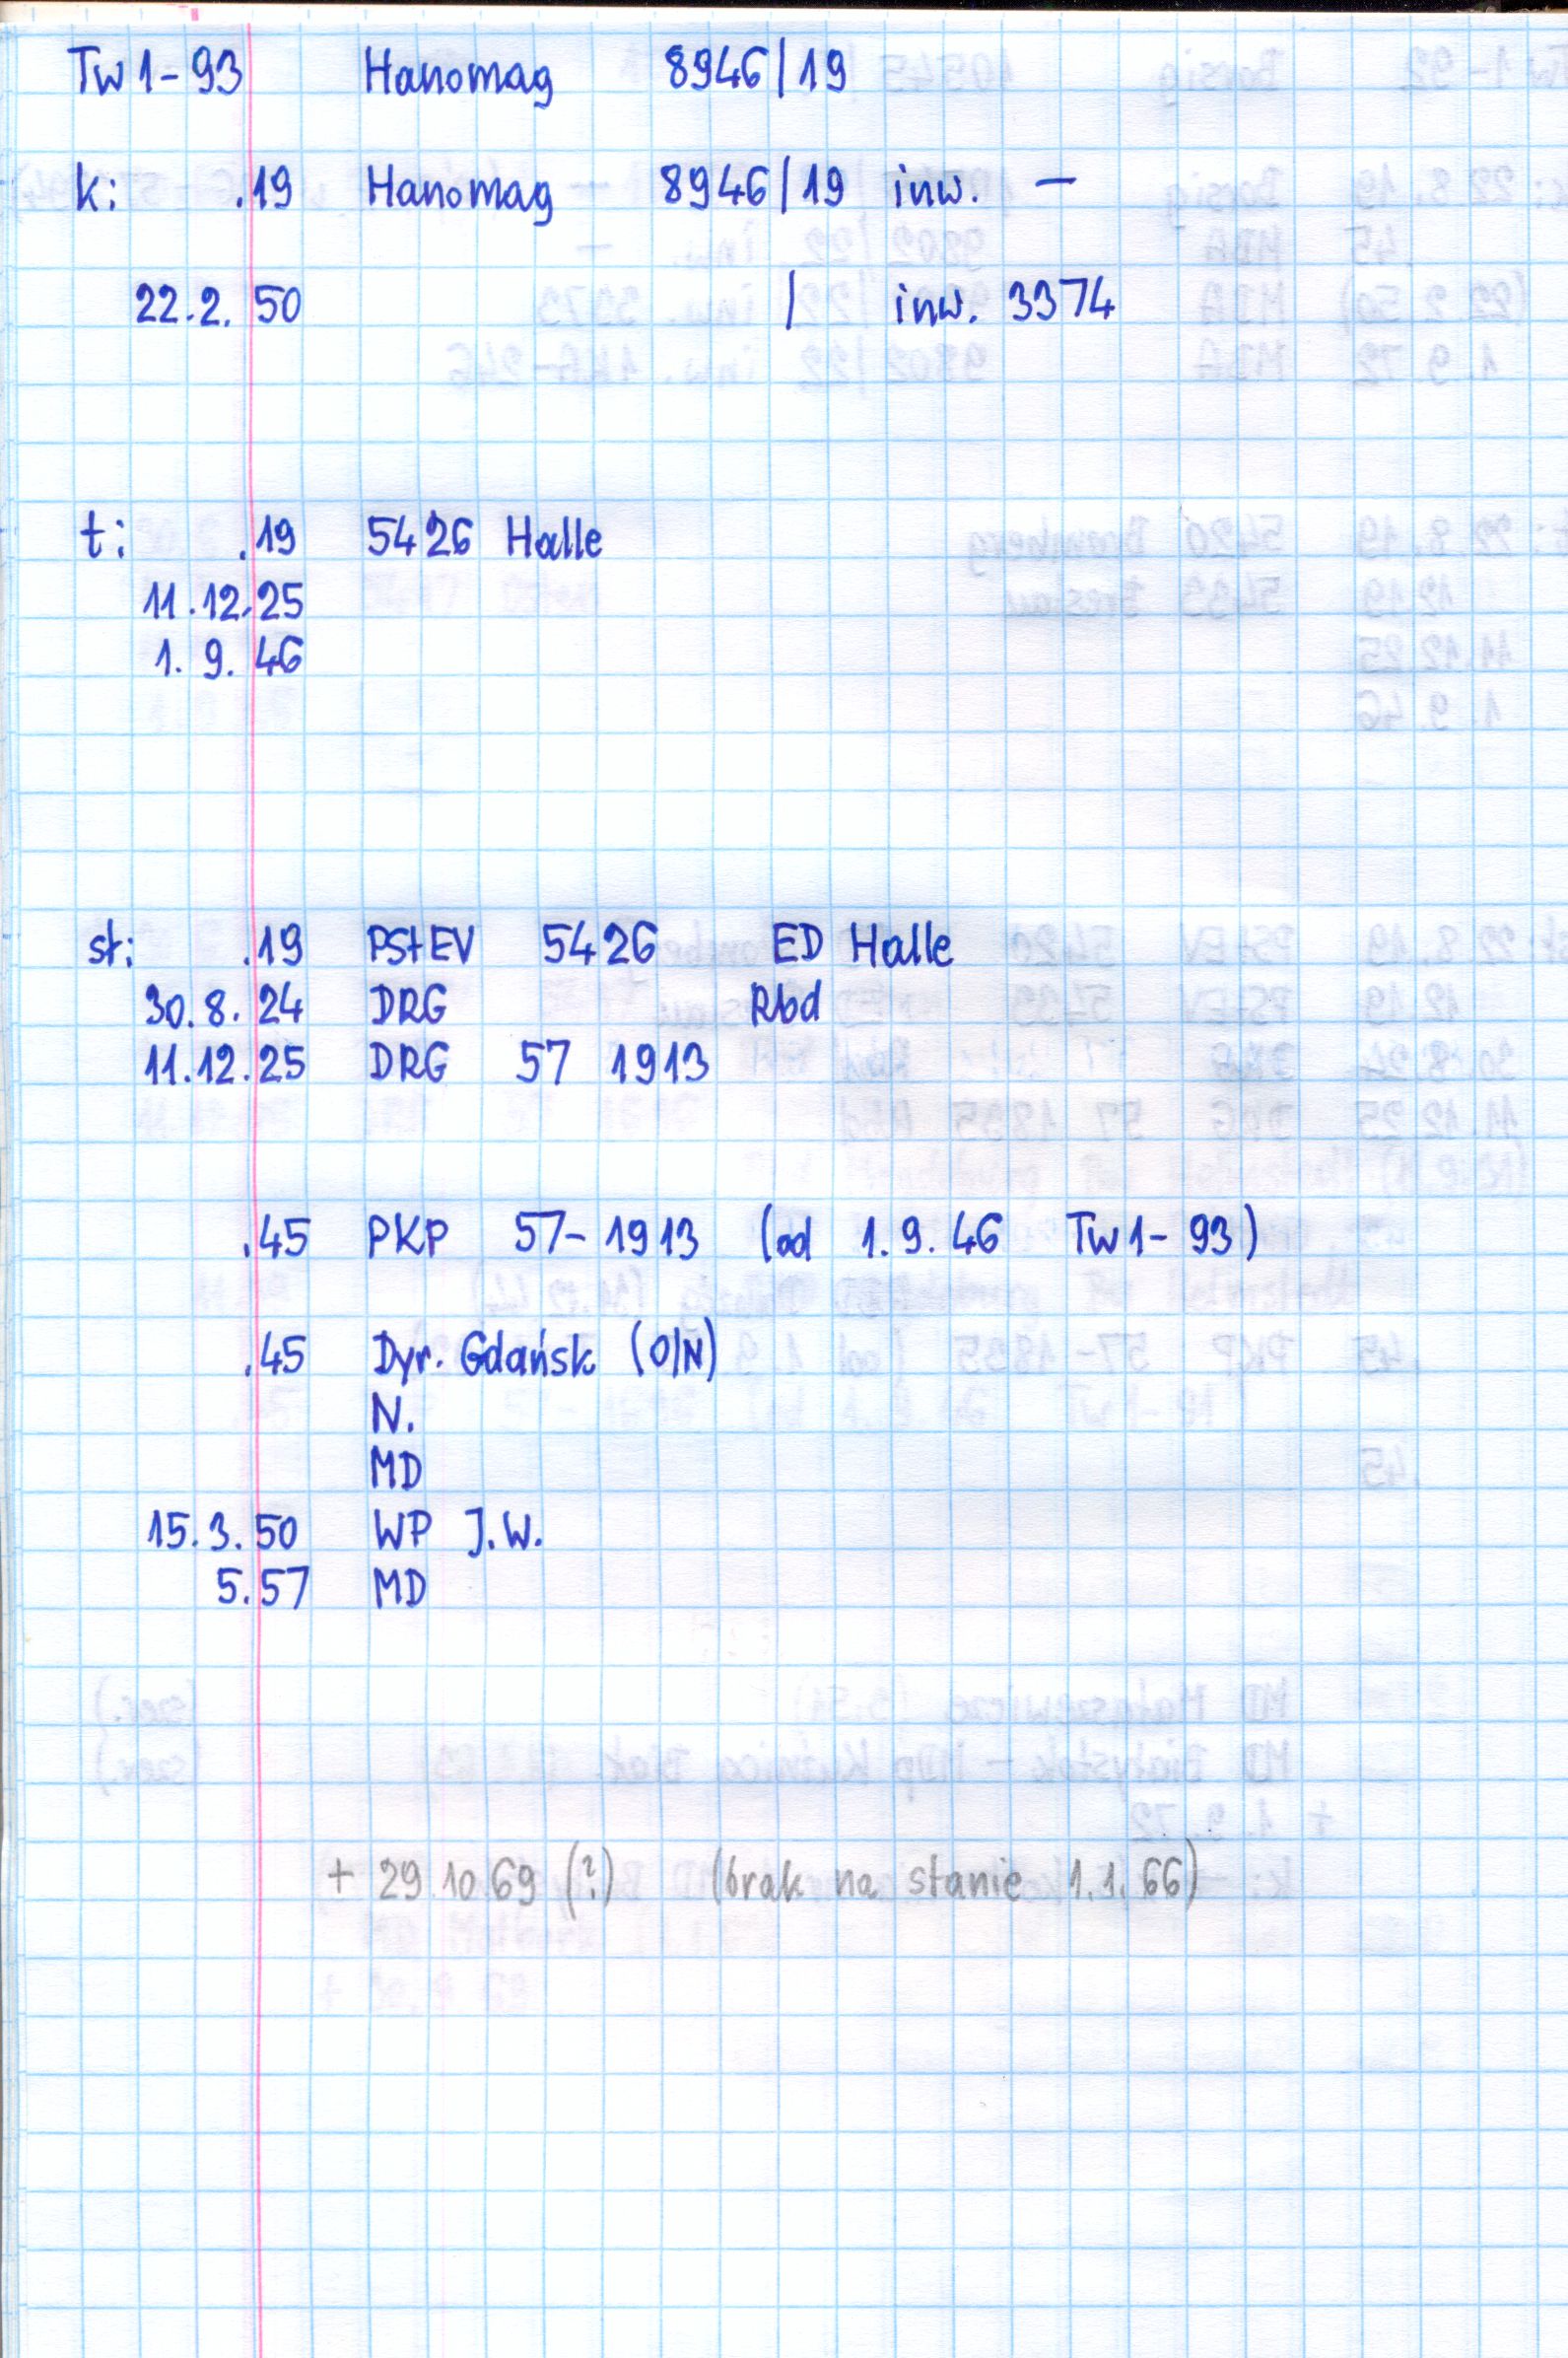 Tw 1-93 Hanomag 8946/19
k: .19 Hanomag 8946/19 inw. —
22.2.50 / inw. 3374
t: .19 5426 Halle
11.12.25
1.9.46
st: .19 PStEV 5426 ED Halle
30.8.24 DRG Rbd
11.12.25 DRG 57 1913
.45 PKP 57-1913 (od 1.9.46 Tw 1-93)
.45 Dyr. Gdańsk (O/N)
N.
MD
15.3.50 WP J.W.
5.57 MD
+ 29.10.69 (?) (brak na stanie 1.1.66)